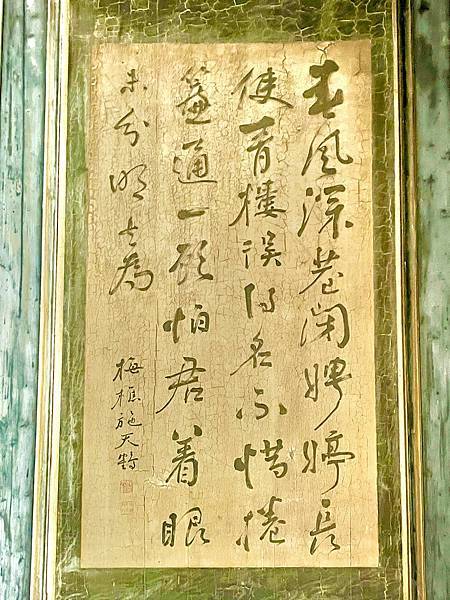 春風深巷閉娉婷長
使青樓誤得名不惜捲
簾通一顧怕君着眼
未分明 為
梅樵施天鶴